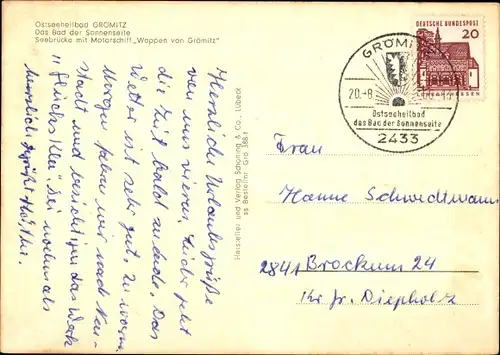 Ostseeheilbad GRÖMITZ
Das Bad der Sonnenseite
Seebrücke mit Motorschiff „Wappen von Grömitz"
Herzliche Urlaubsgrüße
von uns vieren. Leider geht
die Zeit bald zu Ende. Das
Wetter ist sehr gut, zu warm.
Morgen fahren wir nach Neu-
stadt und besichtigen das Werk
Sei nochmals
herzlich gegrüßt
Hersteller und Verlag Schöning & Co., Lübeck
ss Bestellnr. Grö 388 f
GRÖMITZ
20.-8.
Ostseeheilbad
das Bad der Sonnenseite
2433
DEUTSCHE BUNDESPOST
20
LORSCH HESSEN
Frau
Hanne
2841 Brockum 24
Kr. Gr. Diepholz